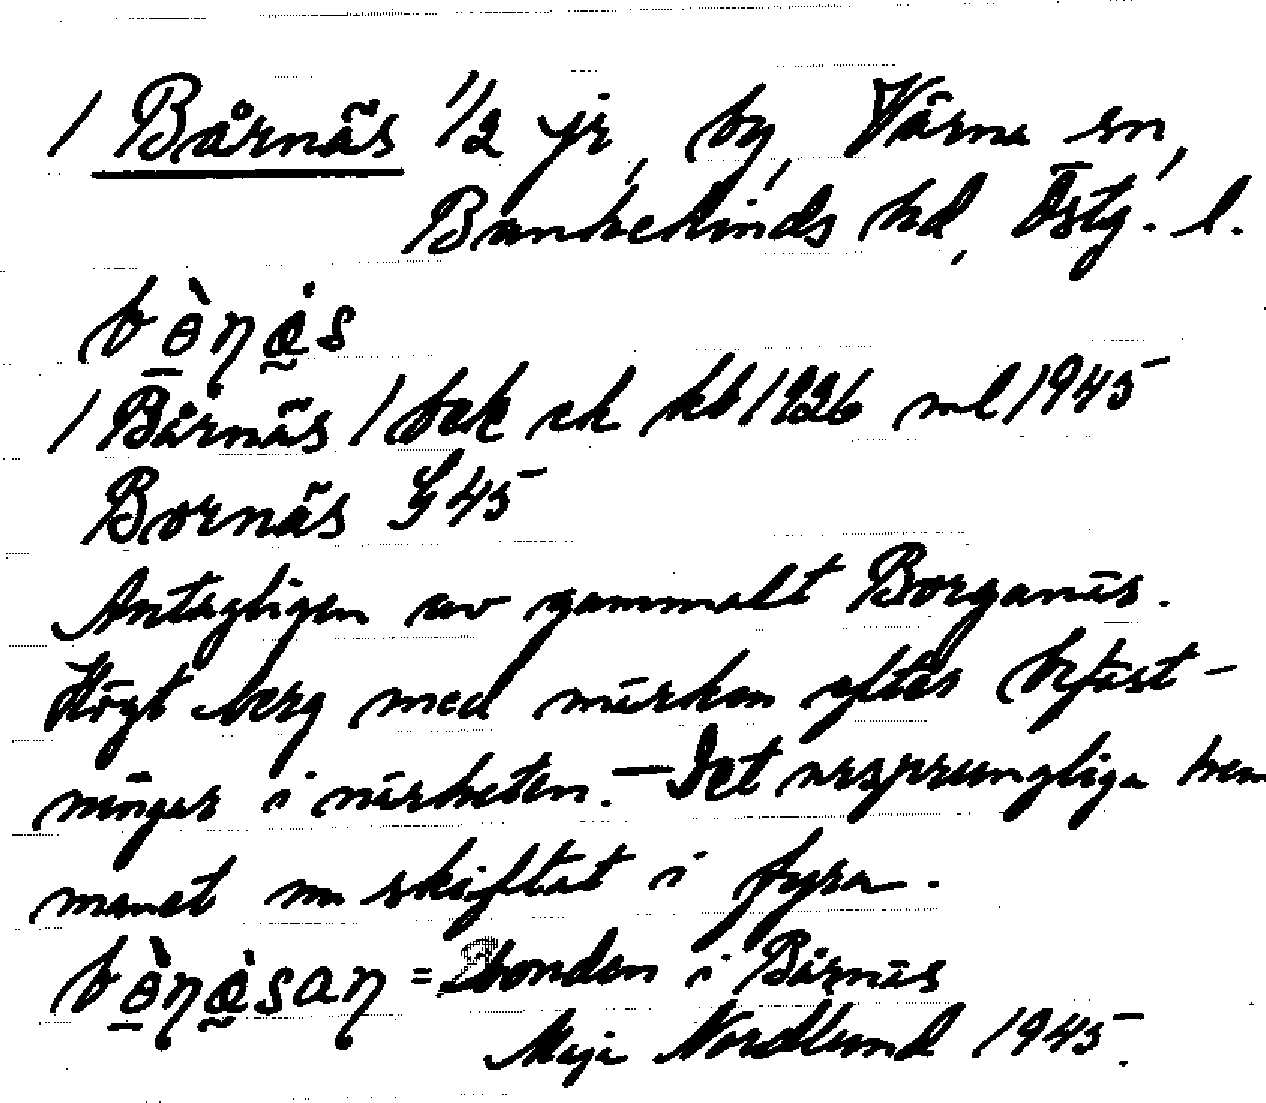 / Bårnäs 1/2 jr, by, Värna sn,
Bankekinds hd, Östg. l.
bɵ̀nạ̈s
/ Bårnäs / bek ek kb 1926 ml 1945
Bornäs G 45
Antagligen av gammalt Borganäs.
Högt berg med märken efter befäst-
ningar i närheten. — Det ursprungliga hem
manet nu skiftat i fyra.
= bonden i Bårnäs
Maja Nordlund 1945.